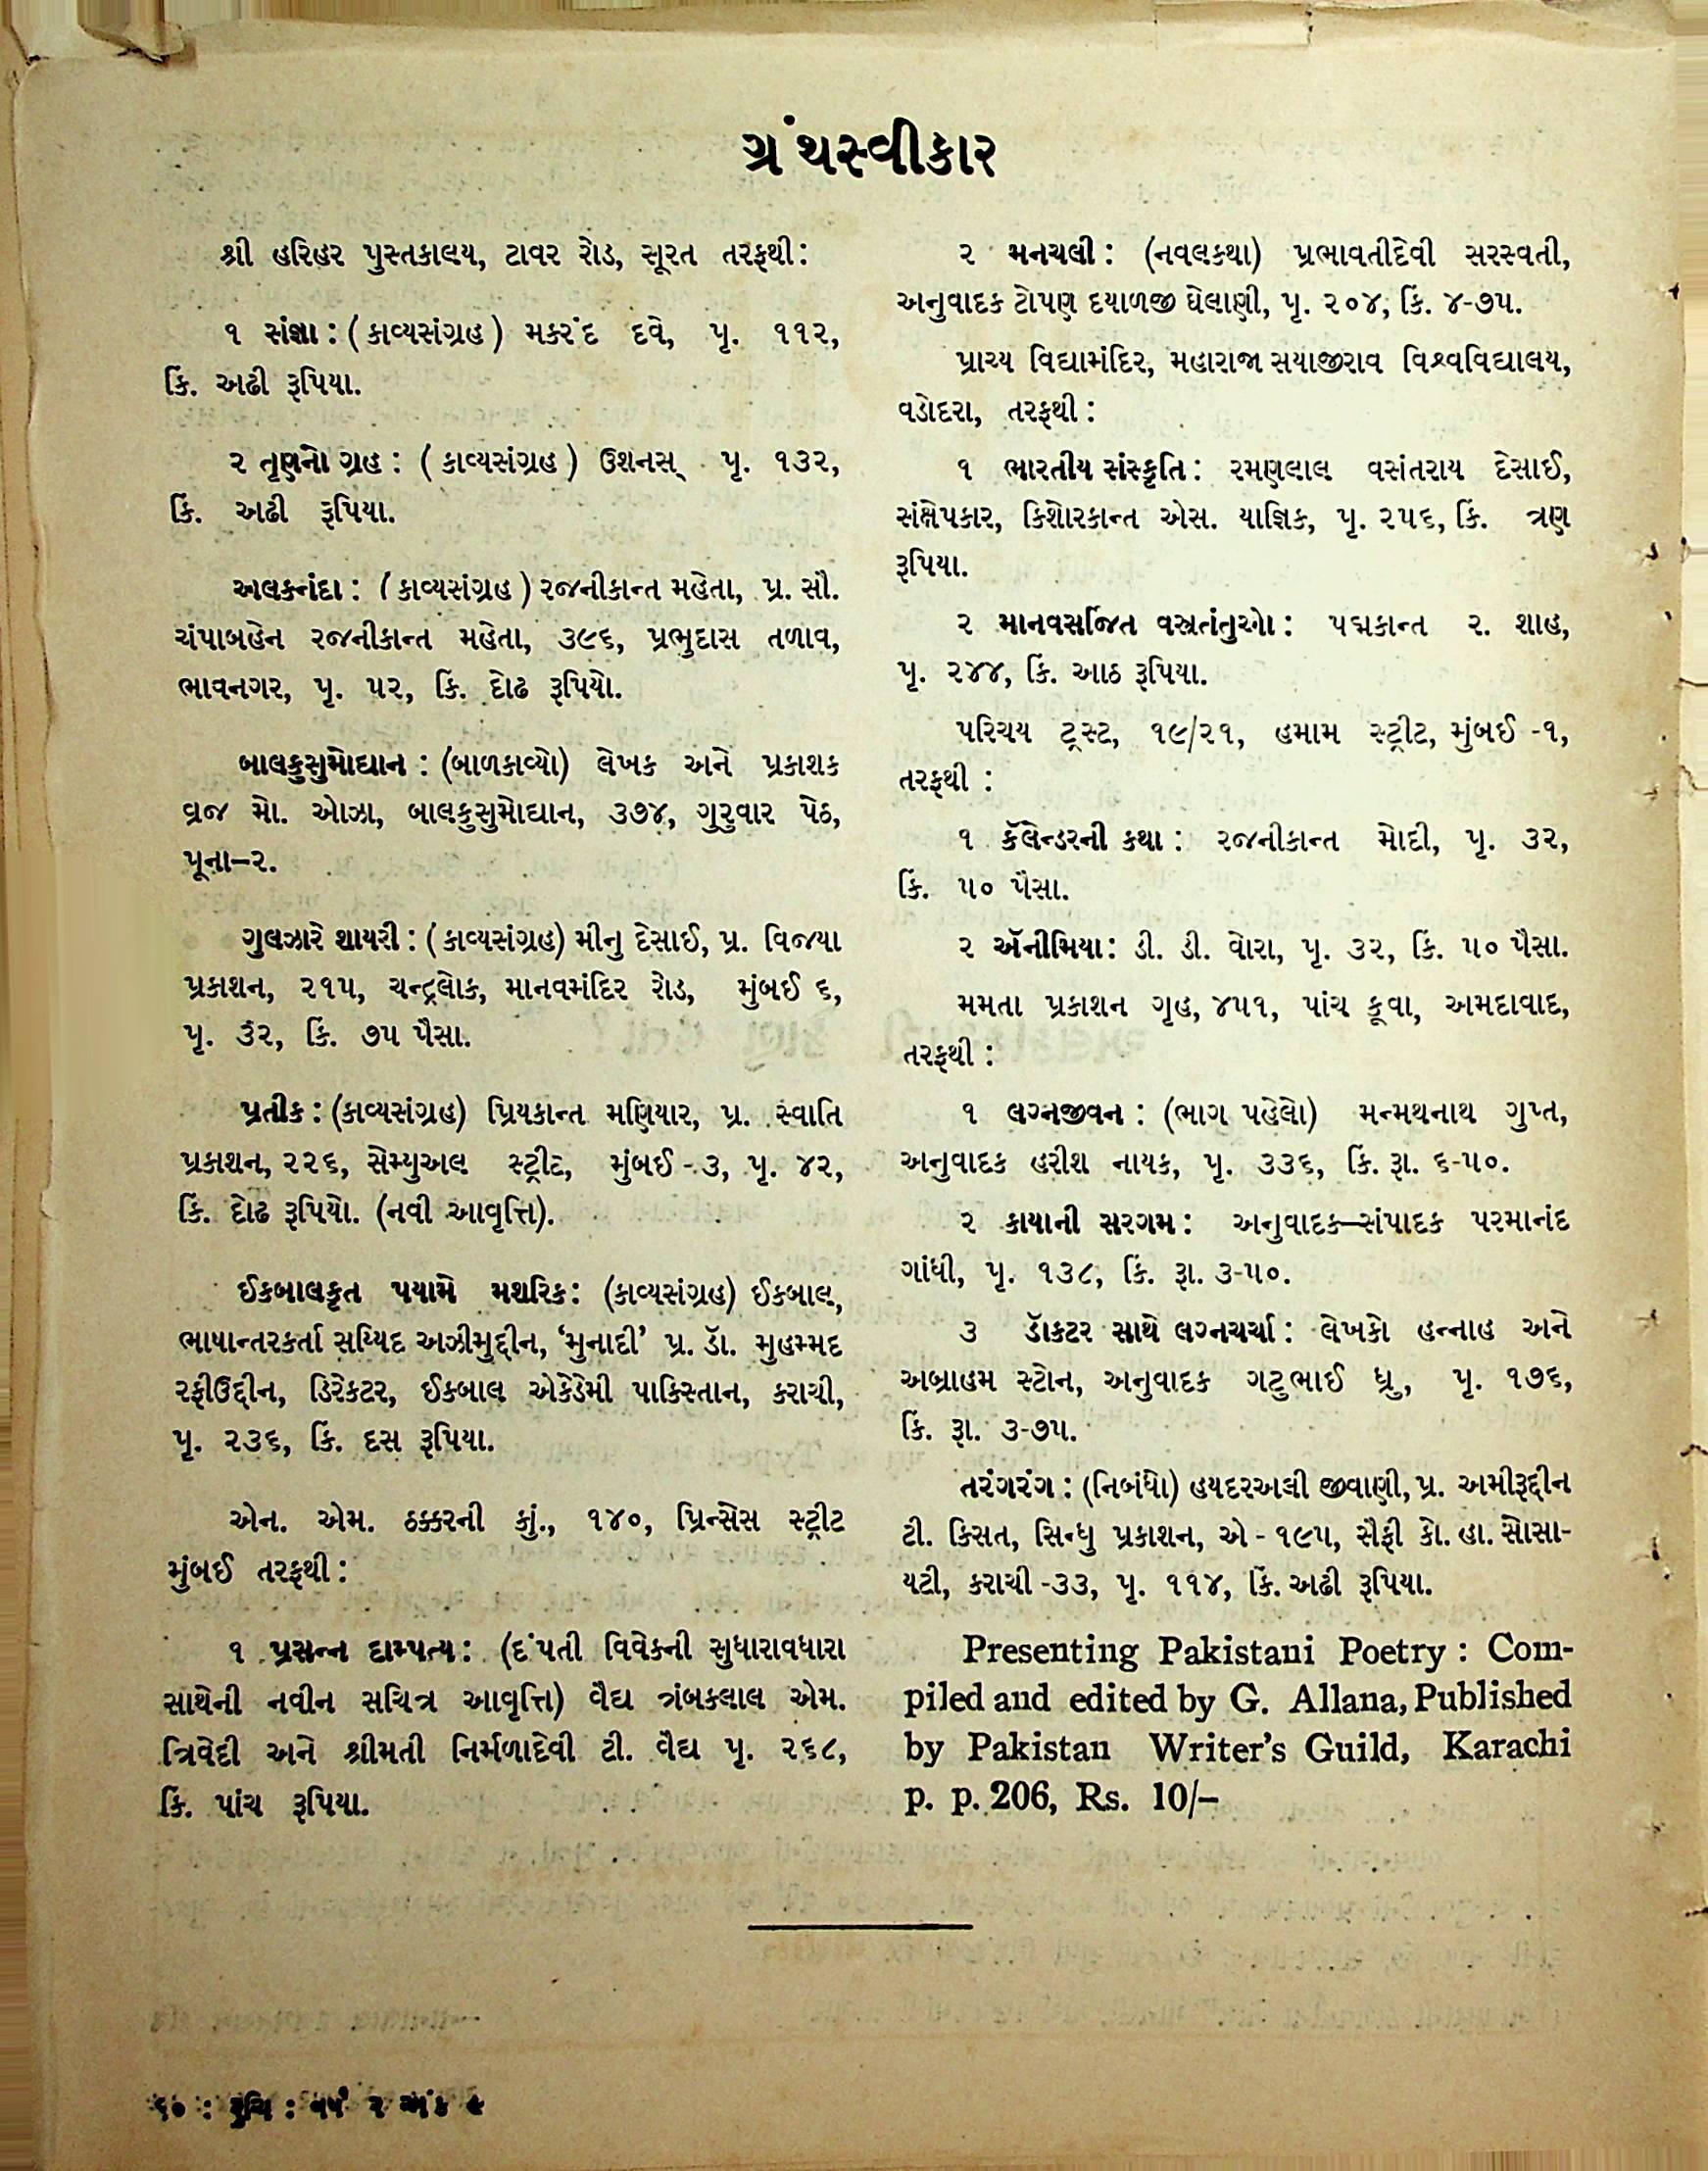 ગ્રંથસ્વીકાર
શ્રી હરિહર પુસ્તકાલય, ટાવર રોડ, સૂરત તરફથી:
૧ સંજ્ઞા: (કાવ્યસંગ્રહ) મકરંદ દવે, પૃ. ૧૧૨,
કિં. અઢી રૂપિયા.
૨ તૃણનો ગ્રહ: (કાવ્યસંગ્રહ) ઉશનસ્ પૃ. ૧૩૨,
કિં. અઢી રૂપિયા.
અલકનંદા: (કાવ્યસંગ્રહ) રજનીકાન્ત મહેતા, પ્ર. સૌ.
ચંપાબહેન રજનીકાન્ત મહેતા, ૩૯૬, પ્રભુદાસ તળાવ,
ભાવનગર, પૃ. ૫૨, કિં. દોઢ રૂપિયો.
બાલકુસુમોદ્યાન: (બાળકાવ્યો) લેખક અને પ્રકાશક
વ્રજ મો. ઓઝા, બાલકુસુમોદ્યાન, ૩૭૪, ગુરુવાર પેઠ,
પૂના–૨.
ગુલઝારે શાયરી: (કાવ્યસંગ્રહ) મીનુ દેસાઈ, પ્ર. વિજયા
પ્રકાશન, ૨૧૫, ચન્દ્રલોક, માનવમંદિર રોડ, મુંબઈ ૬,
પૃ. ૩૨, કિં. ૭૫ પૈસા.
પ્રતીક: (કાવ્યસંગ્રહ) પ્રિયકાન્ત મણિયાર, પ્ર. સ્વાતિ
પ્રકાશન, ૨૨૬, સેમ્યુઅલ સ્ટ્રીટ, મુંબઈ - ૩, પૃ. ૪૨,
કિં. દોઢ રૂપિયો. (નવી આવૃત્તિ).
ઈકબાલકૃત પયામે મશરિક: (કાવ્યસંગ્રહ) ઈકબાલ,
ભાષાન્તરકર્તા સય્યિદ અઝીમુદ્દીન, ‘મુનાદી’ પ્ર. ડૉ. મુહમ્મદ
રફીઉદ્દીન, ડિરેકટર, ઈકબાલ એકેડેમી પાકિસ્તાન, કરાચી,
પૃ. ૨૩૬, કિં. દસ રૂપિયા.
એન. એમ. ઠક્કરની કું., ૧૪૦, પ્રિન્સેસ સ્ટ્રીટ
મુંબઈ તરફથી:
૧ પ્રસન્ન દામ્પત્ય: (દંપતી વિવેકની સુધારાવધારા
સાથેની નવીન સચિત્ર આવૃત્તિ) વૈદ્ય ત્રંબકલાલ એમ.
ત્રિવેદી અને શ્રીમતી નિર્મળાદેવી ટી. વૈદ્ય પૃ. ૨૬૮,
કિં. પાંચ રૂપિયા.
૨ મનચલી: (નવલકથા) પ્રભાવતીદેવી સરસ્વતી,
અનુવાદક ટોપણ દયાળજી ઘેલાણી, પૃ. ૨૦૪, કિં. ૪-૭૫.
પ્રાચ્ય વિદ્યામંદિર, મહારાજા સયાજીરાવ વિશ્વવિદ્યાલય,
વડોદરા, તરફથી:
૧ ભારતીય સંસ્કૃતિ: રમણલાલ વસંતરાય દેસાઈ,
સંક્ષેપકાર, કિશોરકાન્ત એસ. યાજ્ઞિક, પૃ. ૨૫૬, કિં. ત્રણ
રૂપિયા.
૨ માનવસર્જિત વસ્ત્રતંતુઓ: પદ્મકાન્ત ર. શાહ,
પૃ. ૨૪૪, કિં. આઠ રૂપિયા.
પરિચય ટ્રસ્ટ, ૧૯/૨૧, હમામ સ્ટ્રીટ, મુંબઈ -૧,
તરફથી :
૧ કૅલેન્ડરની કથા: રજનીકાન્ત મોદી, પૃ. ૩૨,
કિં. ૫૦ પૈસા.
૨ ઍનીમિયા: ડી. ડી. વોરા, પૃ. ૩૨, કિં. ૫૦ પૈસા.
મમતા પ્રકાશન ગૃહ, ૪૫૧, પાંચ કૂવા, અમદાવાદ,
તરફથી :
૧ લગ્નજીવન: (ભાગ પહેલો) મન્મથનાથ ગુપ્ત,
અનુવાદક હરીશ નાયક, પૃ. ૩૩૬, કિં. રૂા. ૬-૫૦.
૨ કાયાની સરગમ: અનુવાદક—સંપાદક પરમાનંદ
ગાંધી, પૃ. ૧૩૮, કિં. રૂા. ૩-૫૦.
૩ ડૉકટર સાથે લગ્નચર્ચા: લેખકો હન્નાહ અને
અબ્રાહમ સ્ટોન, અનુવાદક ગટુભાઈ ધ્રુ, પૃ. ૧૭૬,
કિં. રૂા. ૩-૭૫.
તરંગરંગ: (નિબંધો) હયદરઅલી જીવાણી, પ્ર. અમીરૂદ્દીન
ટી. કિસત, સિન્ધુ પ્રકાશન, એ - ૧૯૫, સૈફી કો. હા. સોસા-
યટી, કરાચી -૩૩, પૃ. ૧૧૪, કિં. અઢી રૂપિયા.
Presenting Pakistani Poetry : Com-
piled and edited by G. Allana, Published
by Pakistan Writer's Guild, Karachi
p. p. 206, Rs. 10/–
૬૦ : રુચિ : વર્ષ ૨ અંક ૯